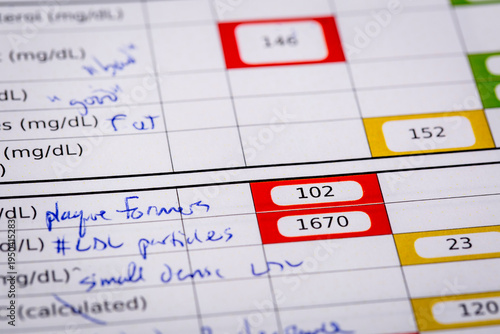 (mg/dL) 146
(mg/dL) "bad"
dL) "good"
s (mg/dL) Fat 152
(mg/dL)
)
/dL) plaque formers 102
/L) #LDL particles 1670
g/dL) small dense LDL 23
(calculated) 120